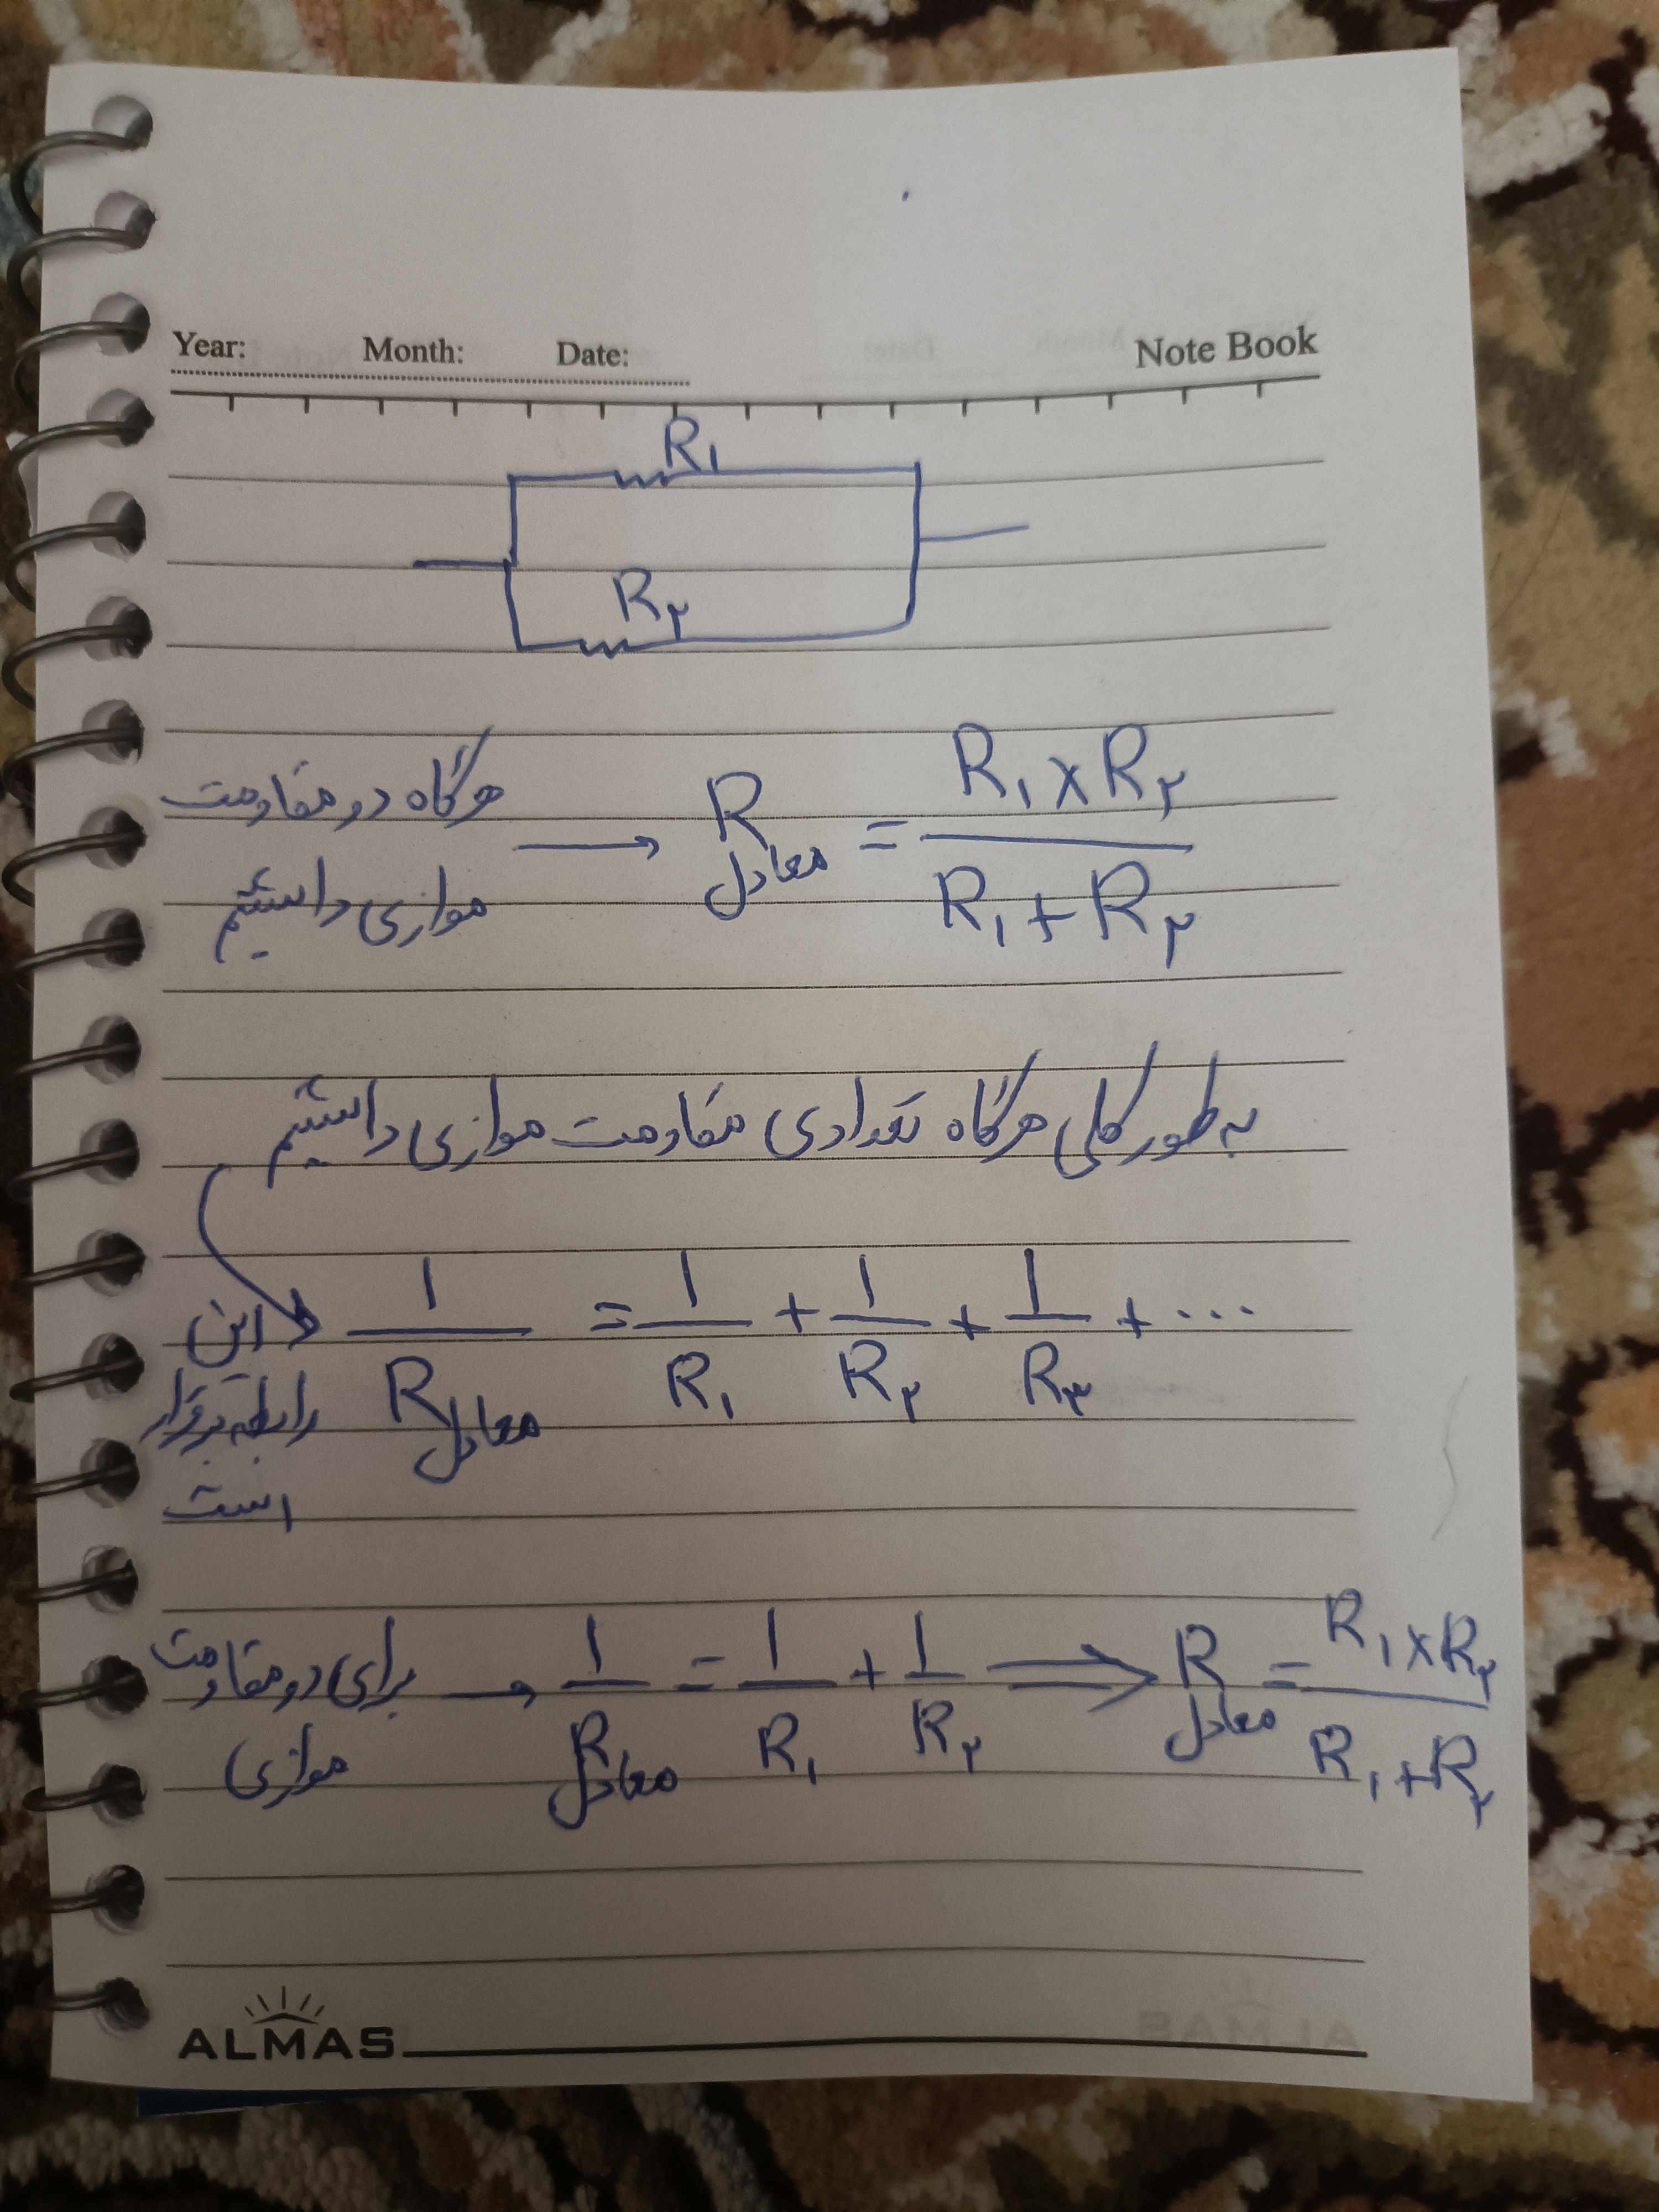 Year: Month: Date: Note Book
R۱
R۲
هرگاه دو مقاومت
موازی داشتیم
→ R معادل = R۱ × R۲ / R۱ + R۲
به طور کلی هرگاه تعدادی مقاومت موازی داشتیم
این
رابطه برقرار
است
۱ / R معادل = ۱ / R۱ + ۱ / R۲ + ۱ / R۳ + ...
برای دو مقاومت
موازی
→ ۱ / R معادل = ۱ / R۱ + ۱ / R۲ ⇒ R معادل = R۱ × R۲ / R۱ + R۲
ALMAS